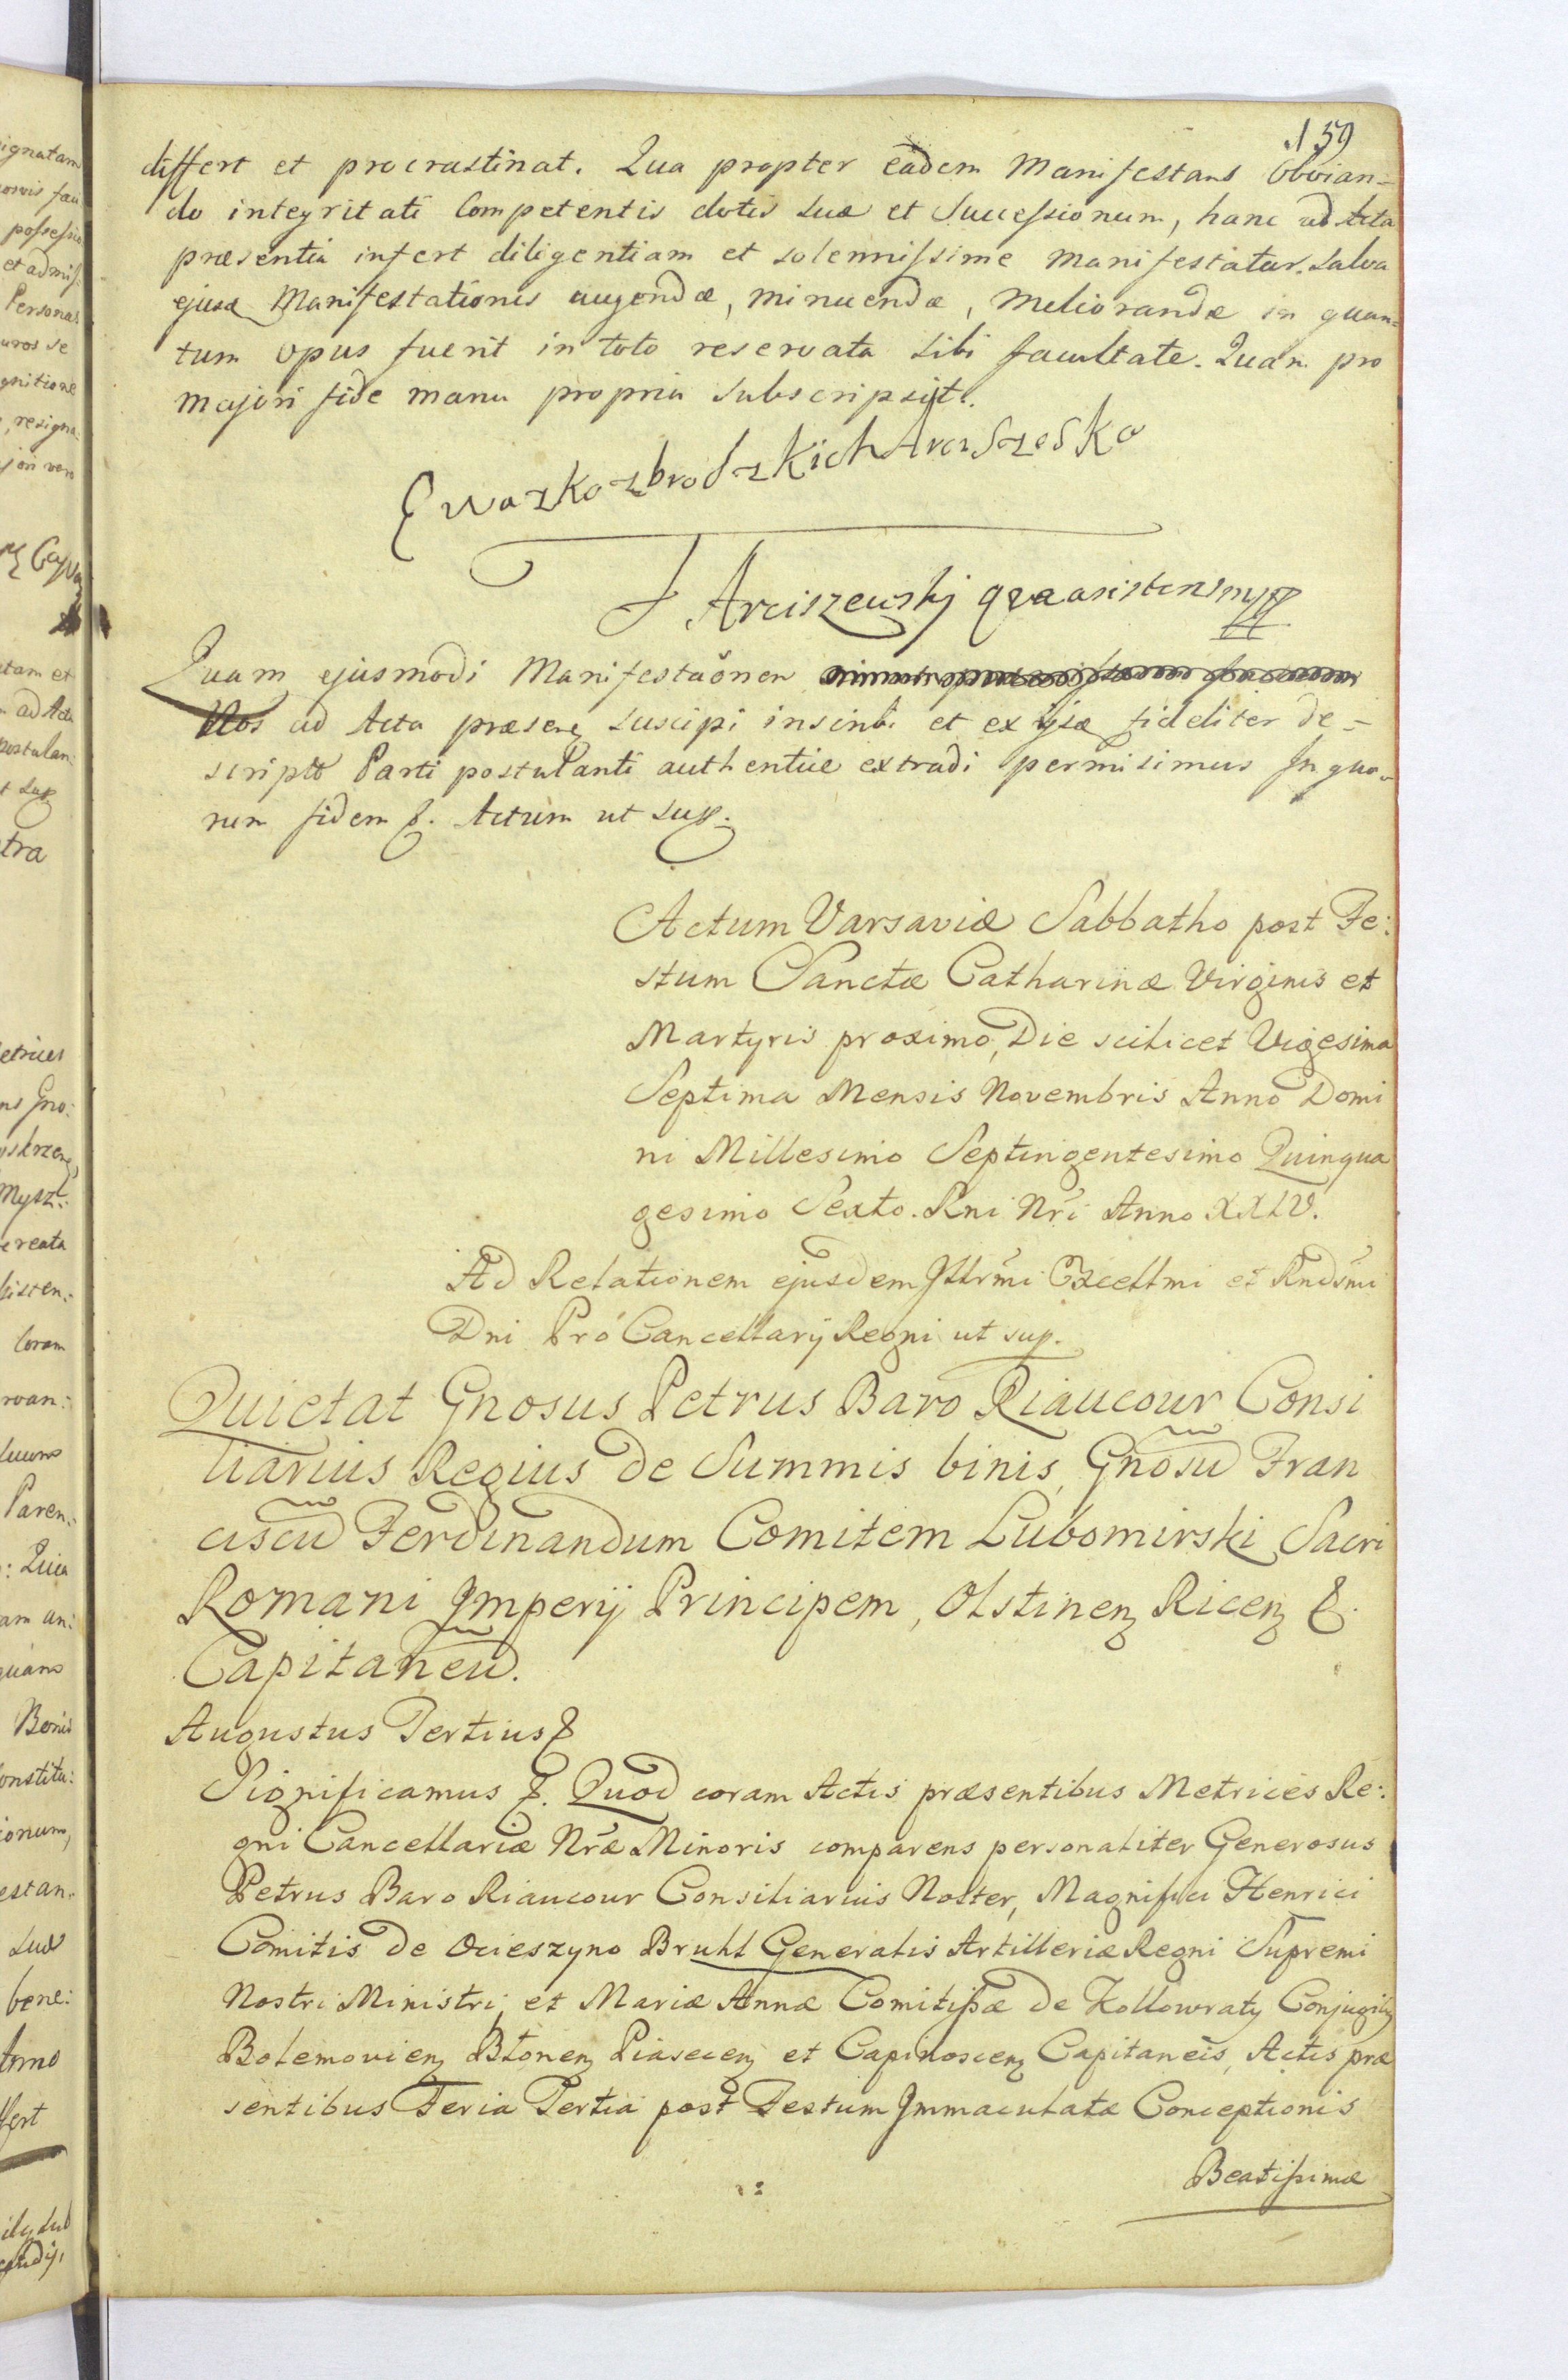 159
differt et procrastinat. Qua propter eadem Manifestans obvian=
do integritati Competentis dotis suæ et Successionum, hanc ad Acta
præsentia infert diligentiam et solennissime manifestatur. Salva
ejusd Manifestationis augendæ, minuendæ, meliorandæ in quan=
tum opus fuerit in toto reservata sibi facultate. Quam pro
majori fide manu propria subscripsit.
Ewa z Kozbrodzkich Arciszeska
J Arciszewskj qva asistens mpp
Quam ejusmodi Manifestaõnem
Nos ad Acta præsen suscipi inscribi et ex ijsd fideliter de=
scripto Parti postulanti authentice extradi permisimus In quo=
rum fidem &. Actum ut sup.
Actum Varsaviæ Sabbatho post Fe:
stum Sanctæ Catharinæ Virginis et
Martyris proximo, Die scilicet Vigesima
Septima Mensis Novembris Anno Domi
ni Millesimo Septingentesimo Quinqua
gesimo Sexto. Rni Nri Anno XXIV.
Ad Relationem ejusdem Illrmi Excellmi et Rndsmi
Dni Pro Cancellarij Regni ut sup.
Quietat Gnosus Petrus Baro Riaucour Consi
liarius Regius de Summis binis, Gnosu Fran
ciscu Ferdinandum Comitem Lubomirski Sacri
Romani Imperij Principem, Olstinen Ricen &.
Capitaneu.
Augustus Tertius &
Significamus &. Quod coram Actis præsentibus Metrices Re:
gni Cancellariæ Nræ Minoris comparens personaliter Generosus
Petrus Baro Riaucour Consiliarius Noster, Magnifici Henrici
Comitis de Ocieszyno Bruhl Generalis Artilleriæ Regni Supremi
Nostri Ministri, et Mariæ Annæ Comitissæ de Kollowraty Conjugũ
Bolemovien Błonen Piasecen et Capinoscen Capitaneis, Actis præ
sentibus Feria Tertia post Festum Immaculatæ Conceptionis
Beatissimæ